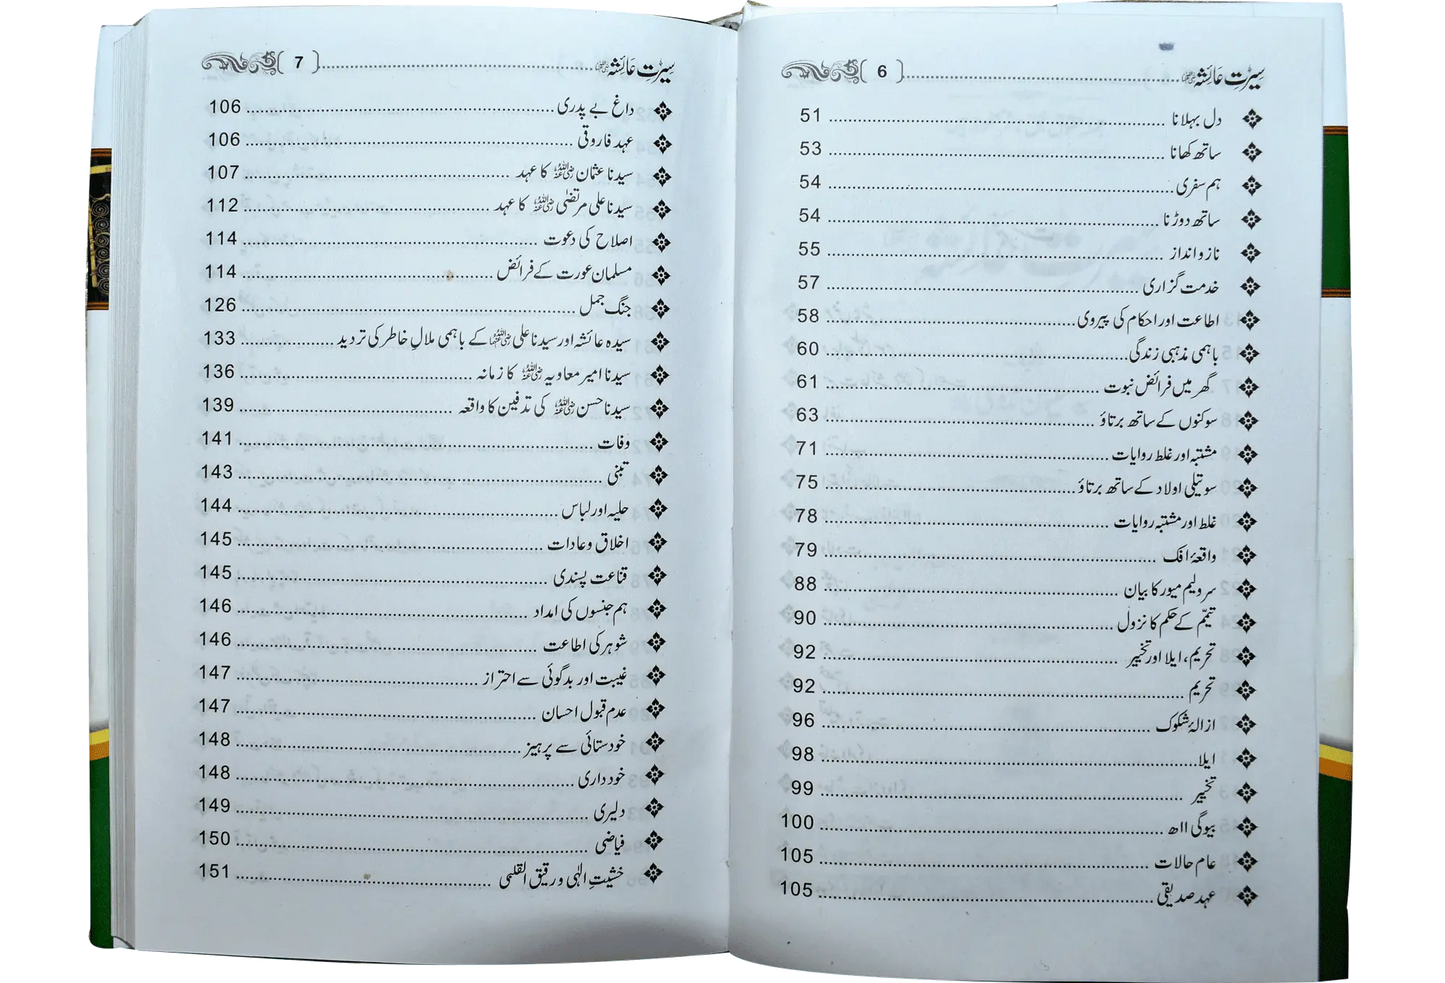 سیرتِ عائشہ رضی اللہ عنہا 6
دل بہلانا 51
ساتھ کھانا 53
ہم سفری 54
ساتھ دوڑنا 54
نازو انداز 55
خدمت گزاری 57
اطاعت اور احکام کی پیروی 58
باہمی مذہبی زندگی 60
گھر میں فرائض نبوت 61
سوکنوں کے ساتھ برتاؤ 63
مشتبہ اور غلط روایات 71
سوتیلی اولاد کے ساتھ برتاؤ 75
غلط اور مشتبہ روایات 78
واقعۂ افک 79
سر ولیم میور کا بیان 88
تیمّم کے حکم کا نزول 90
تحریم، ایلا اور تخییر 92
تحریم 92
ازالۂ شکوک 96
ایلا 98
تخییر 99
بیوگی ااھ 100
عام حالات 105
عہد صدیقی 105
سیرتِ عائشہ رضی اللہ عنہا 7
داغ بے پدری 106
عہد فاروقی 106
سیدنا عثمان رضی اللہ عنہ کا عہد 107
سیدنا علی مرتضیٰ رضی اللہ عنہ کا عہد 112
اصلاح کی دعوت 114
مسلمان عورت کے فرائض 114
جنگ جمل 126
سیدہ عائشہ اور سیدنا علی رضی اللہ عنہما کے باہمی ملالِ خاطر کی تردید 133
سیدنا امیر معاویہ رضی اللہ عنہ کا زمانہ 136
سیدنا حسن رضی اللہ عنہ کی تدفین کا واقعہ 139
وفات 141
تبنی 143
حلیہ اور لباس 144
اخلاق و عادات 145
قناعت پسندی 145
ہم جنسوں کی امداد 146
شوہر کی اطاعت 146
غیبت اور بدگوئی سے احتراز 147
عدم قبول احسان 147
خودستائی سے پرہیز 148
خود داری 148
دلیری 149
فیاضی 150
خشیتِ الٰہی و رقیق القلبی 151